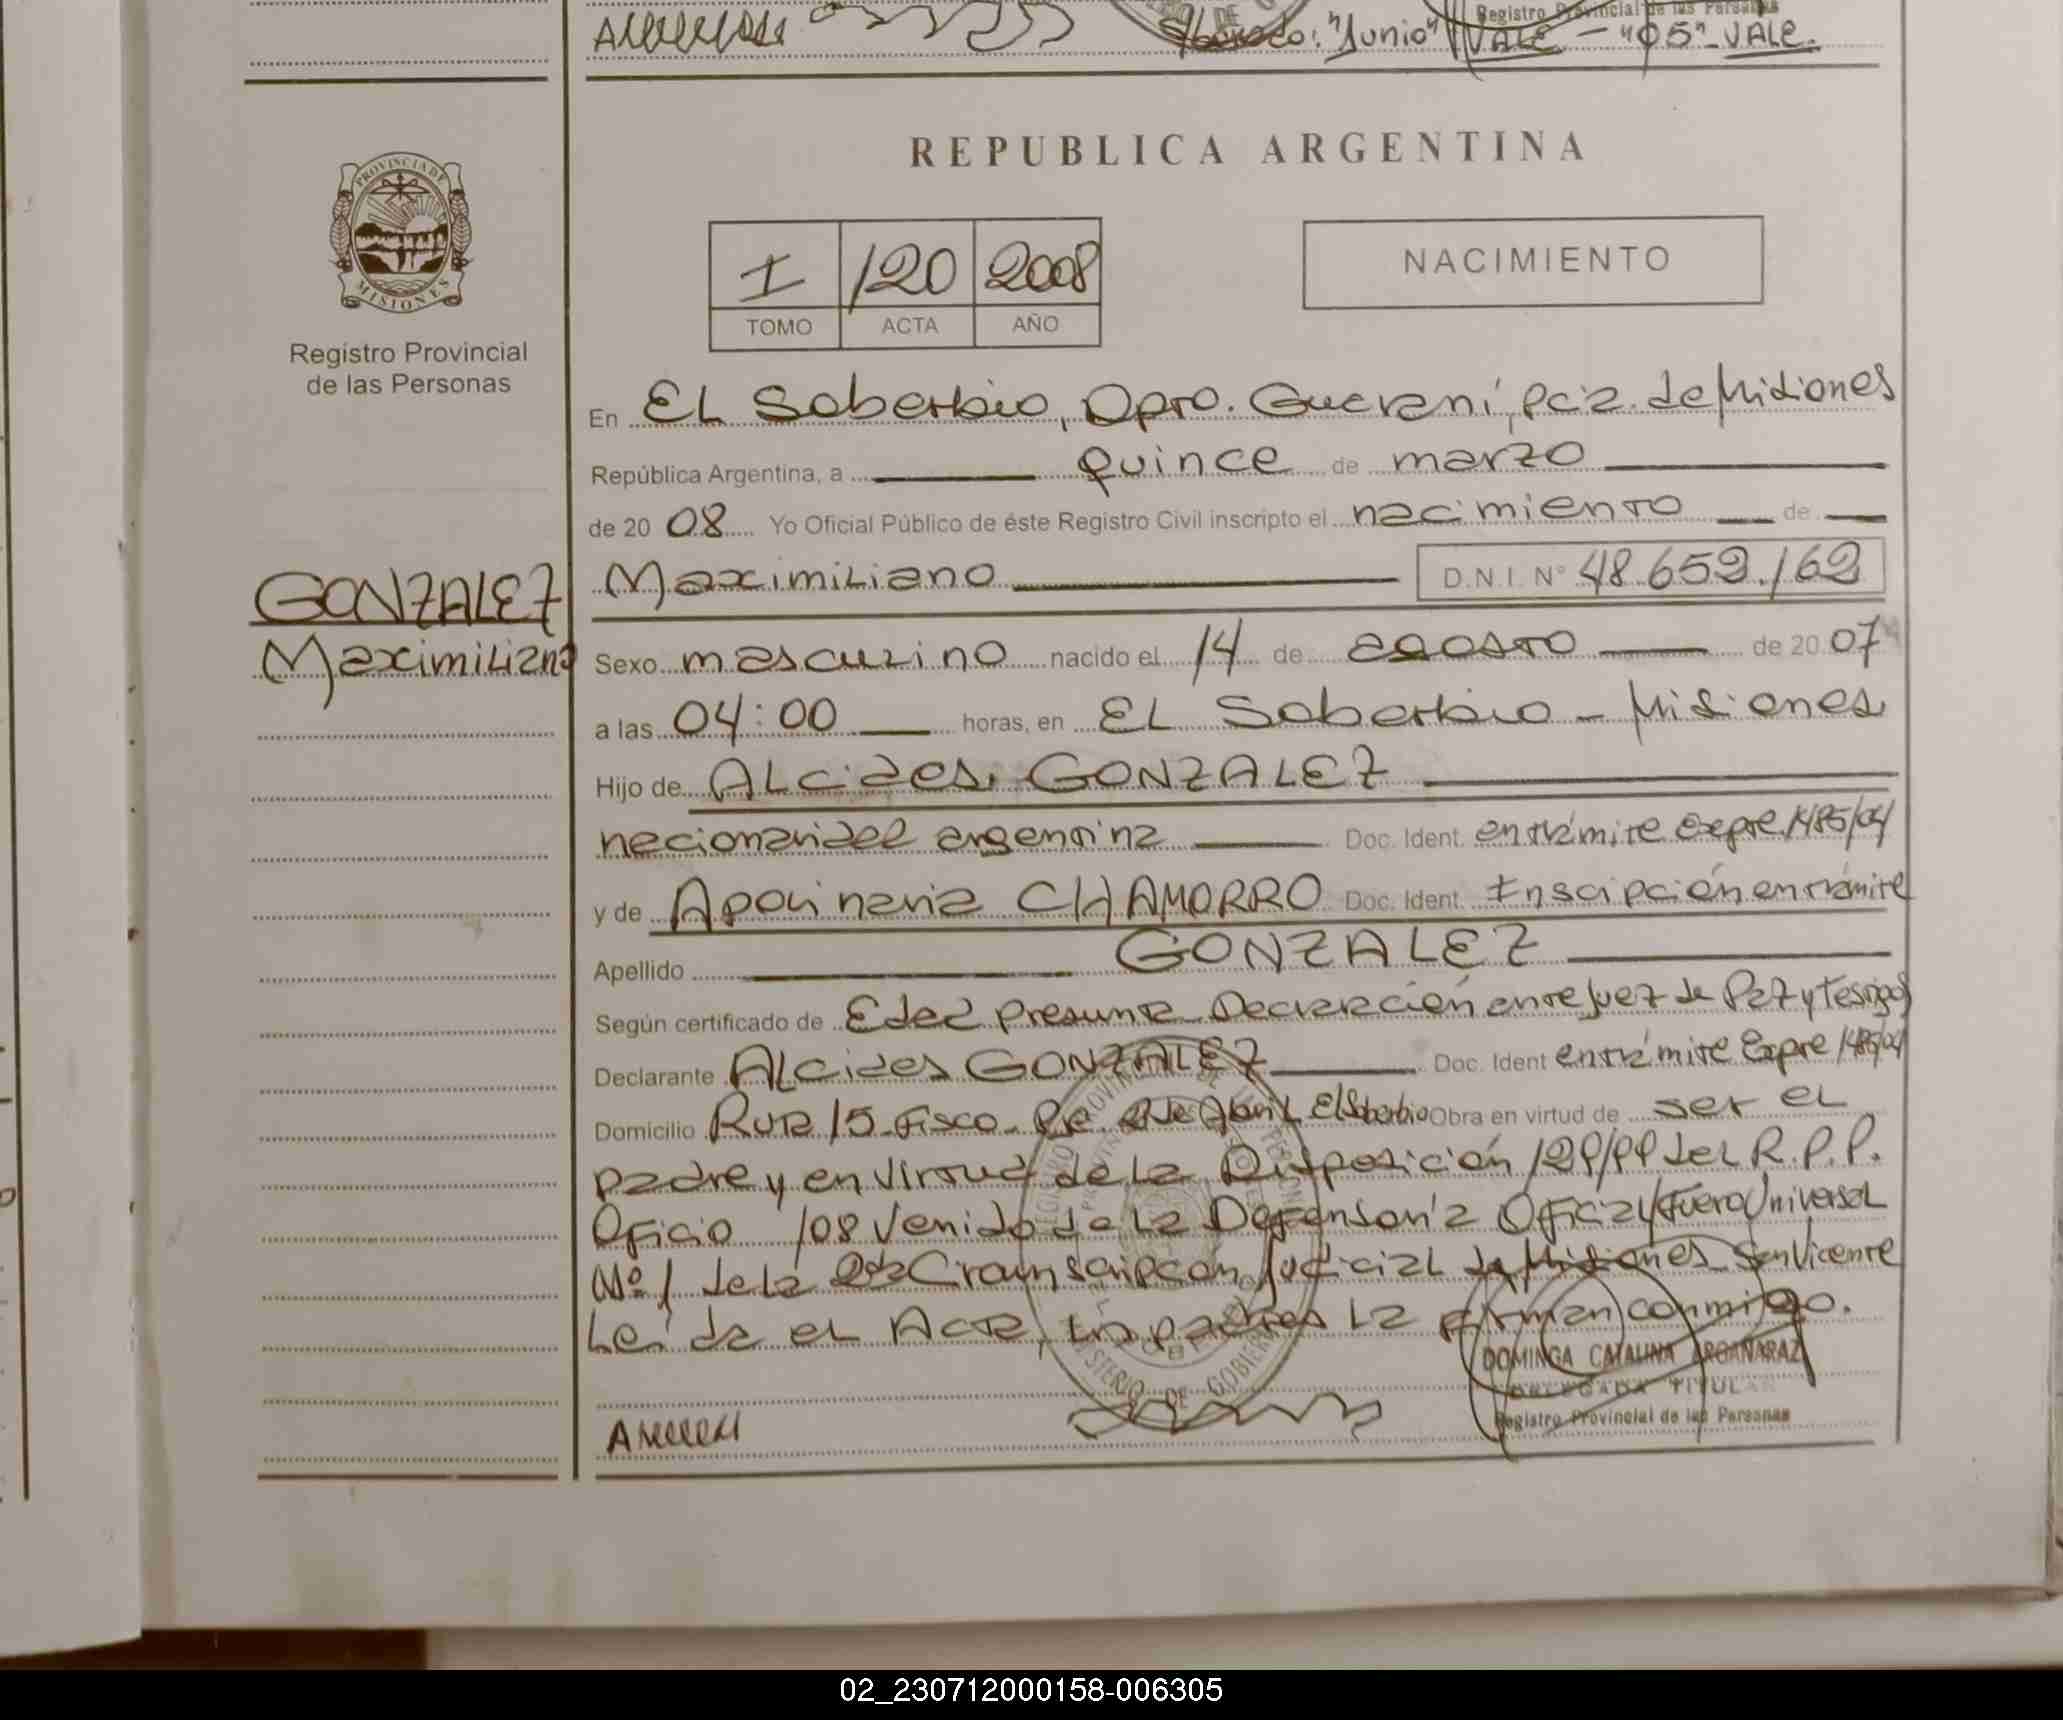 Registro Provincial de las Personas
"Junio" VALE - "05" VALE.
REPUBLICA ARGENTINA
PROVINCIA DE MISIONES
Registro Provincial
de las Personas
I 120 2008
TOMO ACTA AÑO
NACIMIENTO
En EL Soberbio, Dpto. Guarani, pcia. de Misiones
República Argentina, a quince de marzo
de 20 08 Yo Oficial Público de éste Registro Civil inscripto el nacimiento de
GONZALEZ
Maximiliano
Maximiliano D.N.I. Nº 48.659.162
Sexo masculino nacido el 14 de agosto de 20 07
a las 04:00 horas, en EL Soberbio - Misiones
Hijo de Alcides GONZALEZ
nacionalidad argentina Doc. Ident. en trámite Expte 1485/04
y de Apolinaria CHAMORRO Doc. Ident. Inscipción en trámite
Apellido GONZALEZ
Según certificado de Edad presunta Declaración ante Juez de Paz y Testigos
Declarante Alcides GONZALEZ Doc. Ident en trámite Expte 1485/04
Domicilio Ruta 15 Fisco El Soberbio Obra en virtud de ser el
padre y en virtud de la Disposición 129/99 del R.P.P.
Oficio 108 venido de la Defensoría Oficial Fuero Universal
Nº 1 de la 2da Judicial de Misiones San Vicente
Leída el Acta, los padres la firman conmigo.
DOMINGA CATALINA ARGAÑARAZ
DELEGADA TITULAR
Registro Provincial de las Personas
02_230712000158-006305